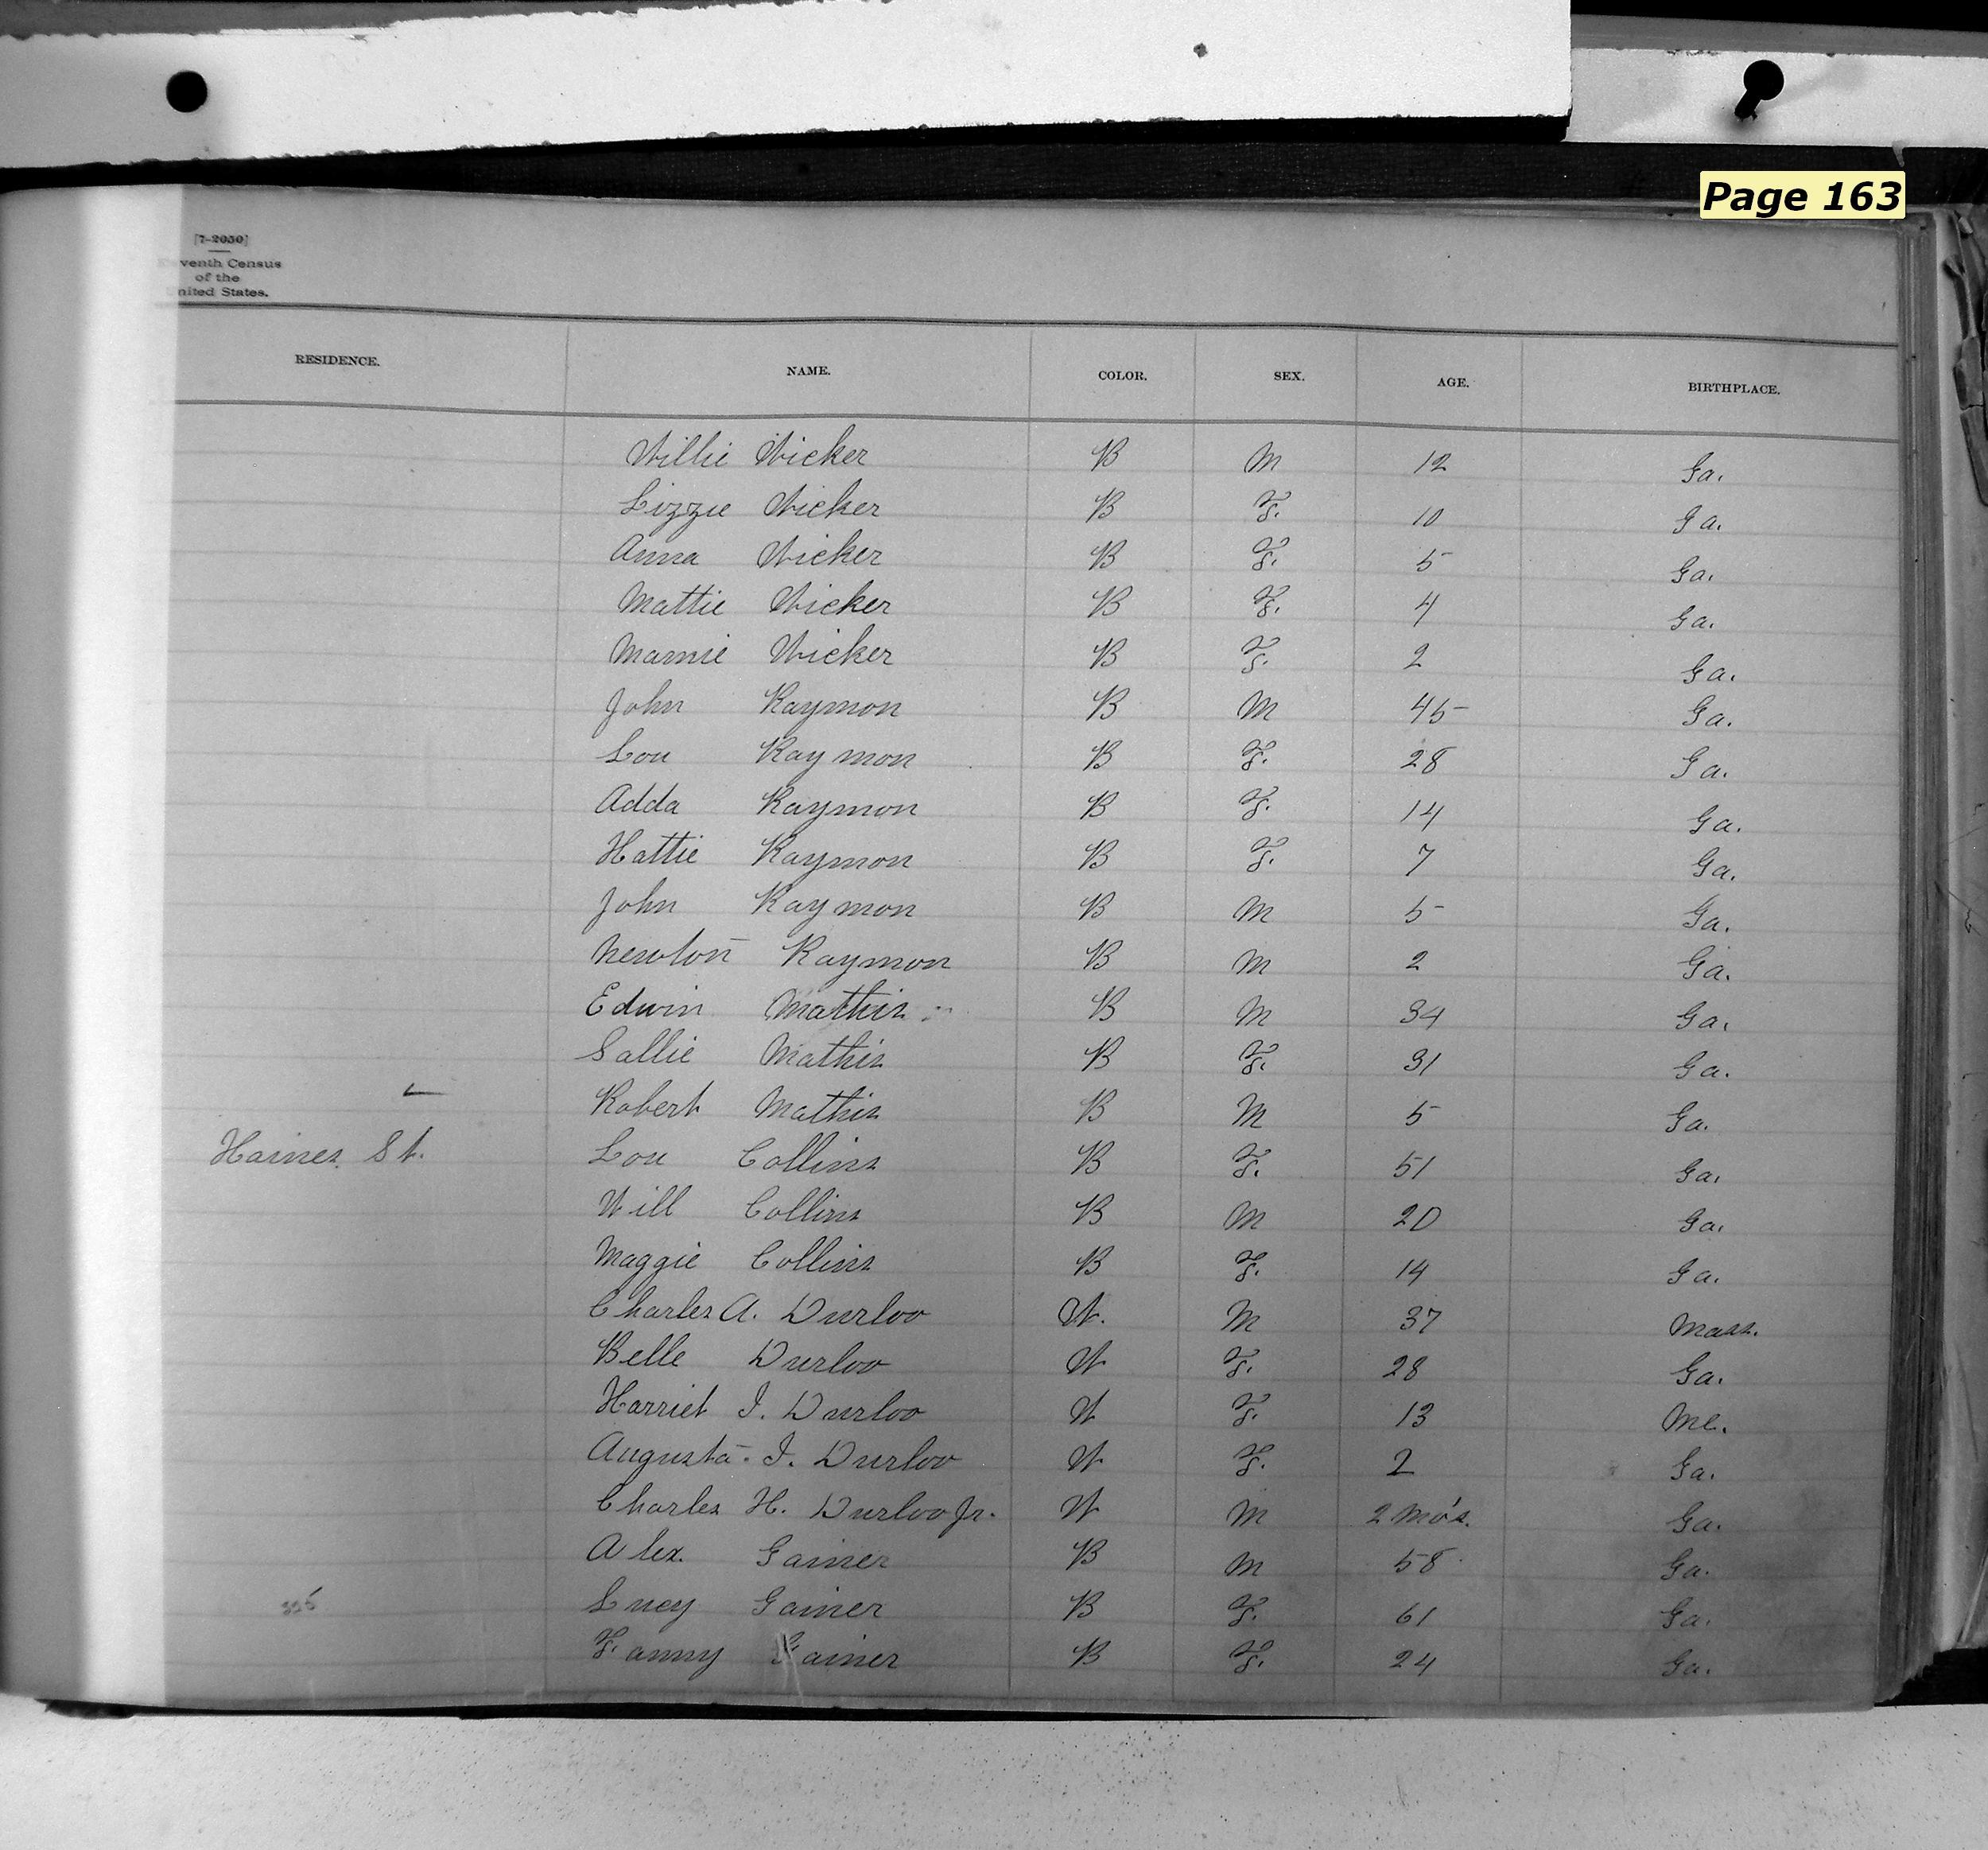 Page 163
[7-2050]
venth Census
of the
nited States.
RESIDENCE. NAME. COLOR. SEX. AGE. BIRTHPLACE.
Willie Wicker B M 12 Ga.
Lizzie Wicker B F. 10 Ga.
Anna Wicker B F. 5 Ga.
Mattie Wicker B F. 4 Ga.
Mamie Wicker B F. 2 Ga.
John Raymon B M 45 Ga.
Lou Raymon B F. 28 Ga.
Adda Raymon B F. 14 Ga.
Hattie Raymon B F. 7 Ga.
John Raymon B M 5 Ga.
Newton Raymon B M 2 Ga.
Edwin Mathis B M 34 Ga.
Sallie Mathis B F. 31 Ga.
Robert Mathis B M 5 Ga.
Haines St. Lou Collins B F. 51 Ga.
Will Collins B M 20 Ga.
Maggie Collins B F. 14 Ga.
Charles A. Durloo W. M 37 Mass.
Belle Durloo W F. 28 Ga.
Harriet I. Durloo W F. 13 Me.
Augusta I. Durloo W F. 2 Ga.
Charles H. Durloo Jr. W M 2 mo's. Ga.
Alex. Gainer B M 58 Ga.
Lucy Gainer B F. 61 Ga.
Fanny Gainer B F. 24 Ga.